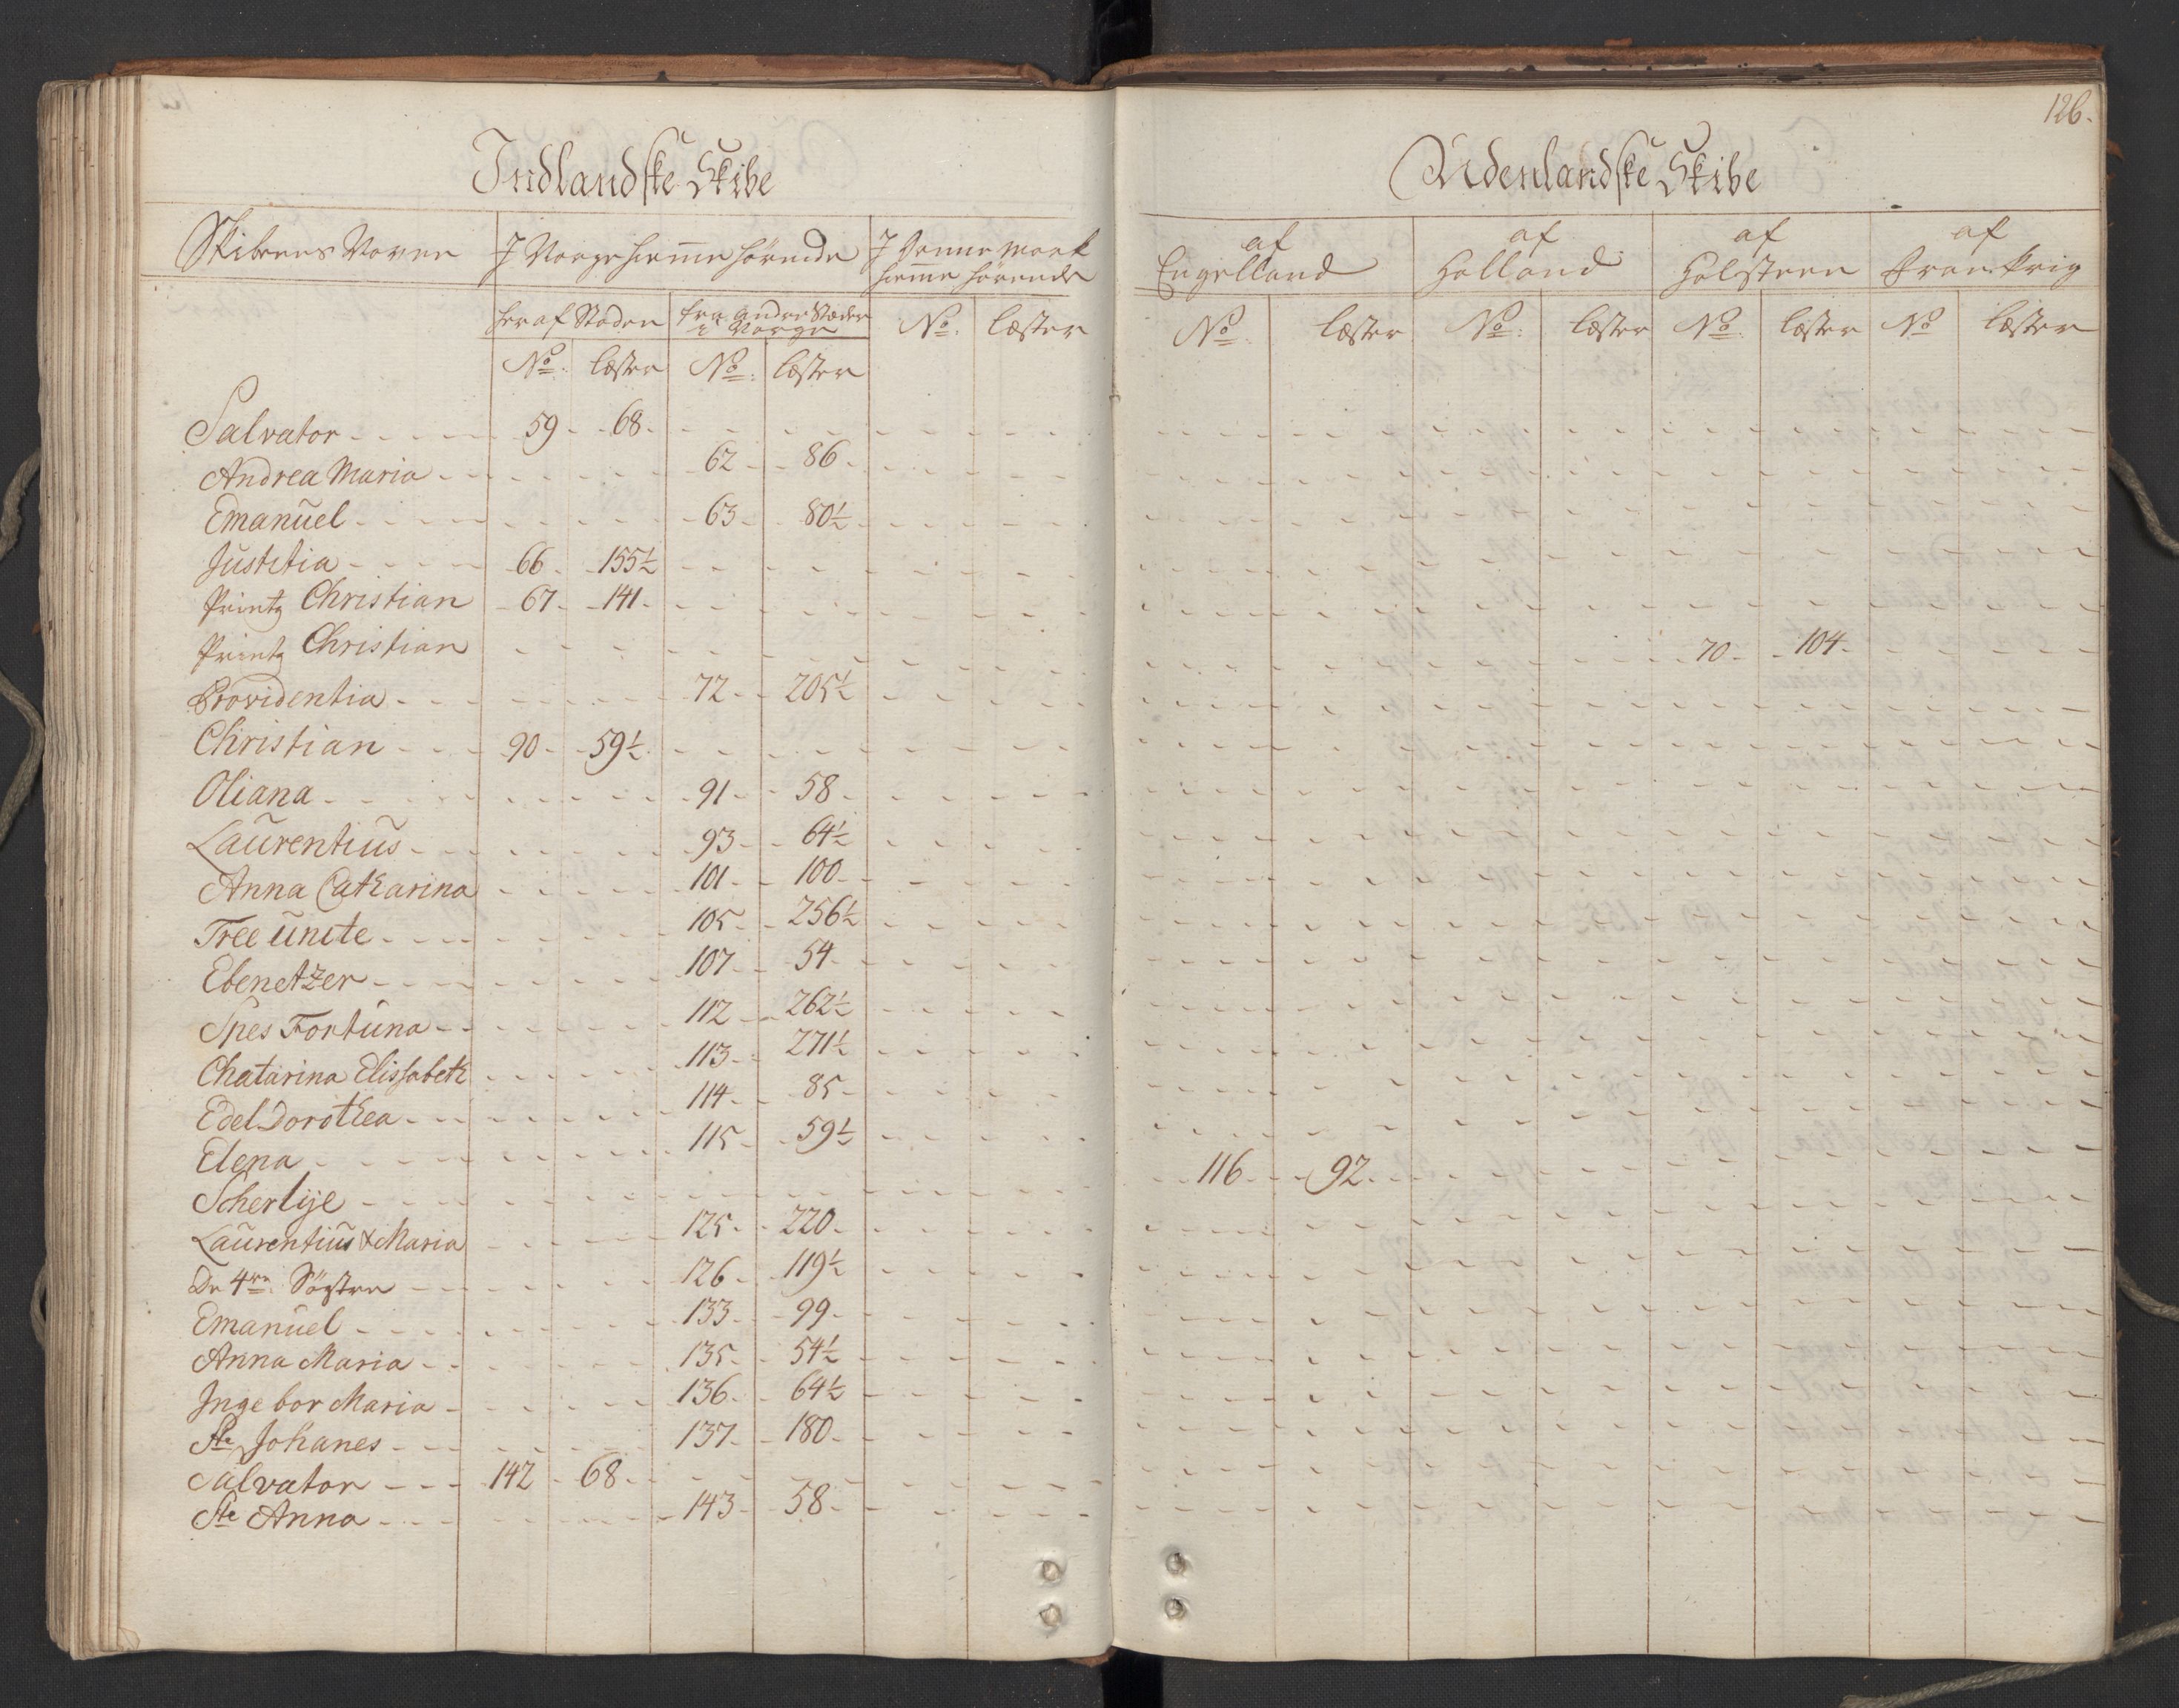 126.
Indlandske Skibe
Udenlandske Skibe
Skibenes Navne
I Norge hiemme hörende
I Danne Mark hieme hörende
her af Staden
fra andre Stæder i Norge
No. læster
No: læster No: læster
af Engelland
af Holland
af Holsteen
af Frankrig
No. læster No: læster No: læster No læster
Salvator - 59 - 68 -
Andrea Maria - 62 - 86 -
Emanuel - 63 - 80½
Justitia - 66 - 155½
Printz Christian - 67 - 141 -
Printz Christian - 70 - 104 -
Providentia - 72 - 205½
Christian - 90 - 59½
Oliana - 91 - 58 -
Laurentius - 93 - 64½
Anna Catharina - 101 - 100 -
Tree Unite - 105 - 256½
Ebenetzer - 107 - 54 -
Spes Fortuna - 112 - 262½
Chatarina Elissabeth - 113 - 271½
Edel Dorothea - 114 - 85 -
Elena - 115 - 59½
Scherlije - 116 - 92 -
Laurentius & Maria - 125 - 220 -
De 4re Söstre - 126 - 119½
Emanuel - 133 - 99 -
Anna Maria - 135 - 54½
Inge bor Maria - 136 - 64½
Ste Johanes - 137 - 180 -
Salvator - 142 - 68 -
Ste Anna - 143 - 58 -